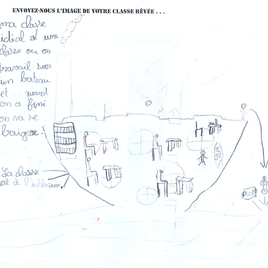 ENVOYEZ-NOUS L'IMAGE DE VOTRE CLASSE RÊVÉE . . .
ma classe
idial et une
classe ou on
travail sur
un bateau
et quand
on a fini
on va se
baigner
La classe
est à l'intérieur